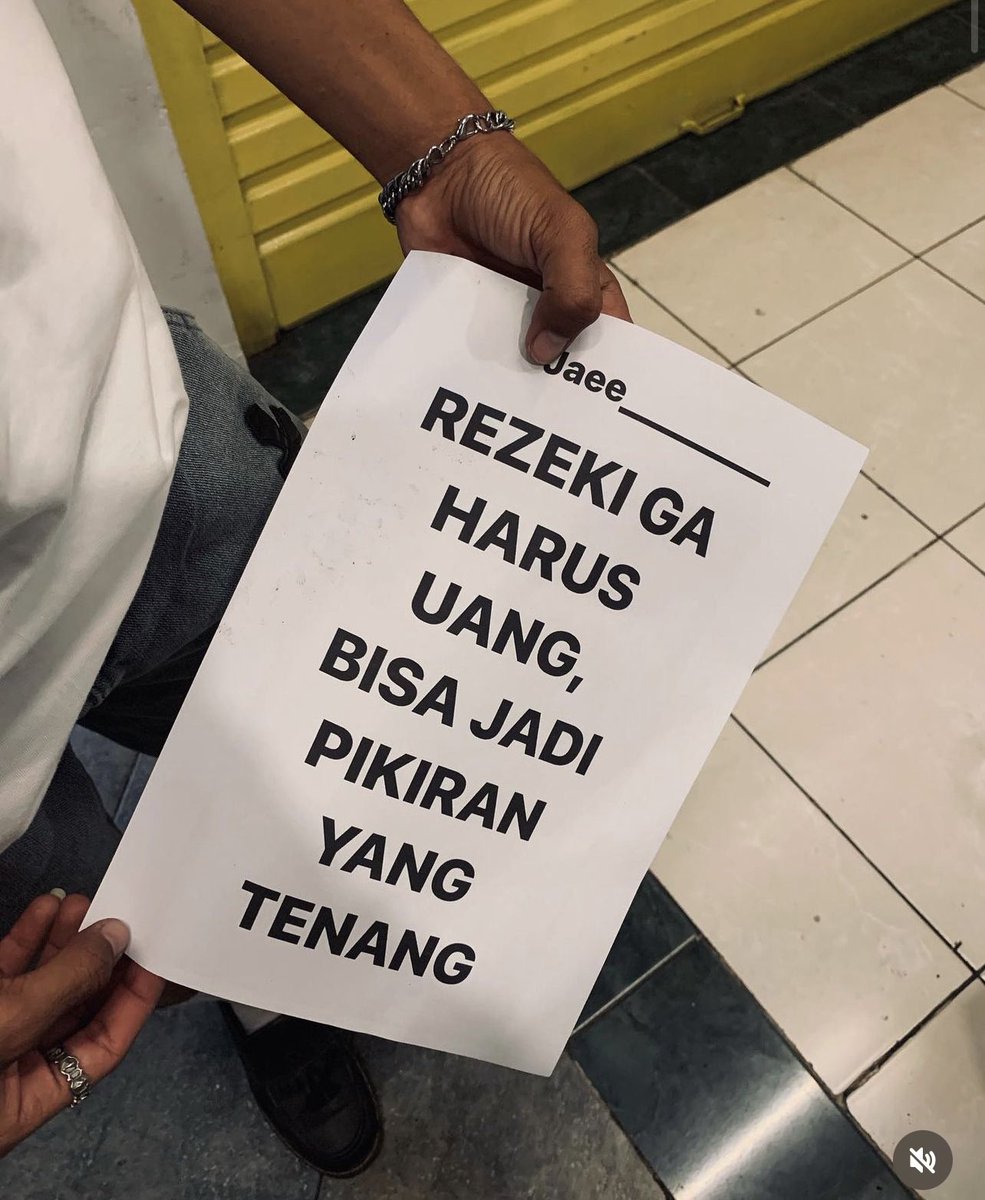 Jaee____
REZEKI GA
HARUS
UANG,
BISA JADI
PIKIRAN
YANG
TENANG